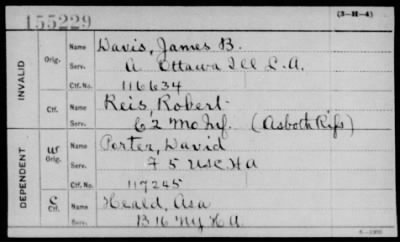 155229
(3-H-4)
INVALID
Orig. Name Davis, James B.
Serv. A Ottawa Ill L.A.
Ctf. No. 116634
Ctf. Name Reis, Robert
Serv. C 2 Mo Inf. (Asboth Rifs)
DEPENDENT
W Orig. Name Porter, David
Serv. F 5 USC H A
Ctf. No. 117245
C Ctf. Name Heald, Asa
Serv. B 16 NY H A
6-1502